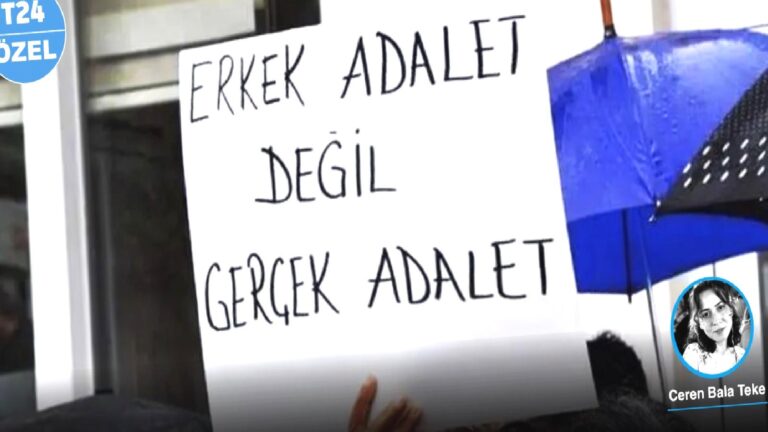 T24
ÖZEL
ERKEK ADALET
DEĞİL
GERÇEK ADALET
Ceren Bala Teke